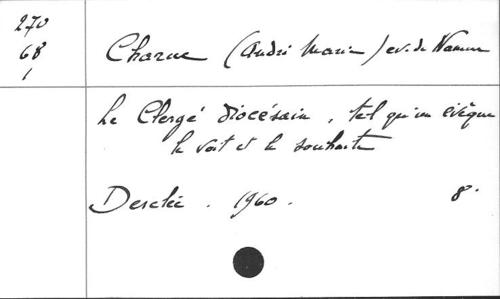 270
68
1
Charue (André Marie) ev. de Namur
Le Clergé diocésain, tel qu'un evêque
le voit et le souhaite
Desclée. 1960. 8°